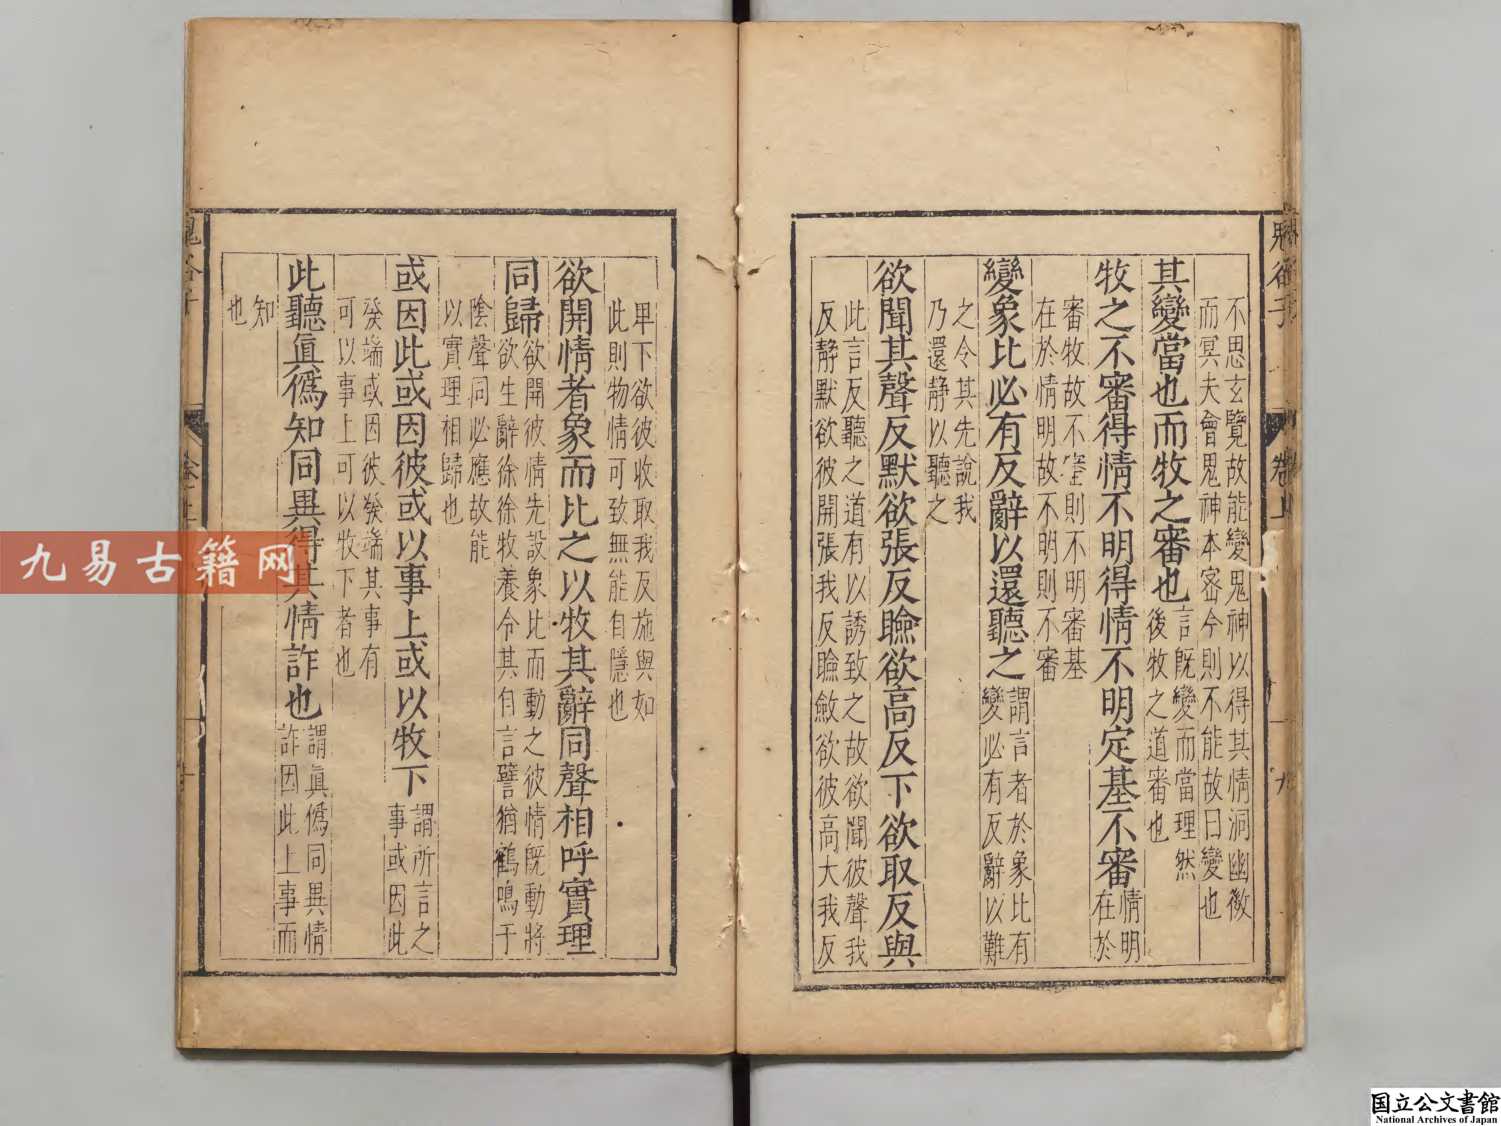 不思玄覽故能變鬼神以得其情洞幽微
而冥夫會鬼神本密今則不能故曰變也
其變當也而牧之審也
言既變而當理然
後牧之道審也
牧之不審得情不明得情不明定基不審
情明
在於
審牧故不審則不明審基
在於情明故不明則不審
變象比必有反辭以還聽之
謂言者於象比有
變必有反辭以難
之令其先說我
乃還静以聽之
欲聞其聲反默欲張反瞼欲高反下欲取反與
此言反聽之道有以誘致之故欲聞彼聲我
反静默欲彼開張我反瞼斂欲彼高大我反
卑下欲彼收取我反施與如
此則物情可致無能自隱也
欲開情者象而比之以牧其辭同聲相呼實理
同歸
欲開彼情先設象比而動之彼情既動將
欲生辭徐徐牧養令其自言譬猶鶴鳴于
陰聲同必應故能
以實理相歸也
或因此或因彼或以事上或以牧下
謂所言之
事或因此
發端或因彼發端其事有
可以事上可以牧下者也
此聽眞僞知同異得其情詐也
謂眞僞同異情
詐因此上事而
知
也
卷上
九
九易古籍网
国立公文書館
National Archives of Japan